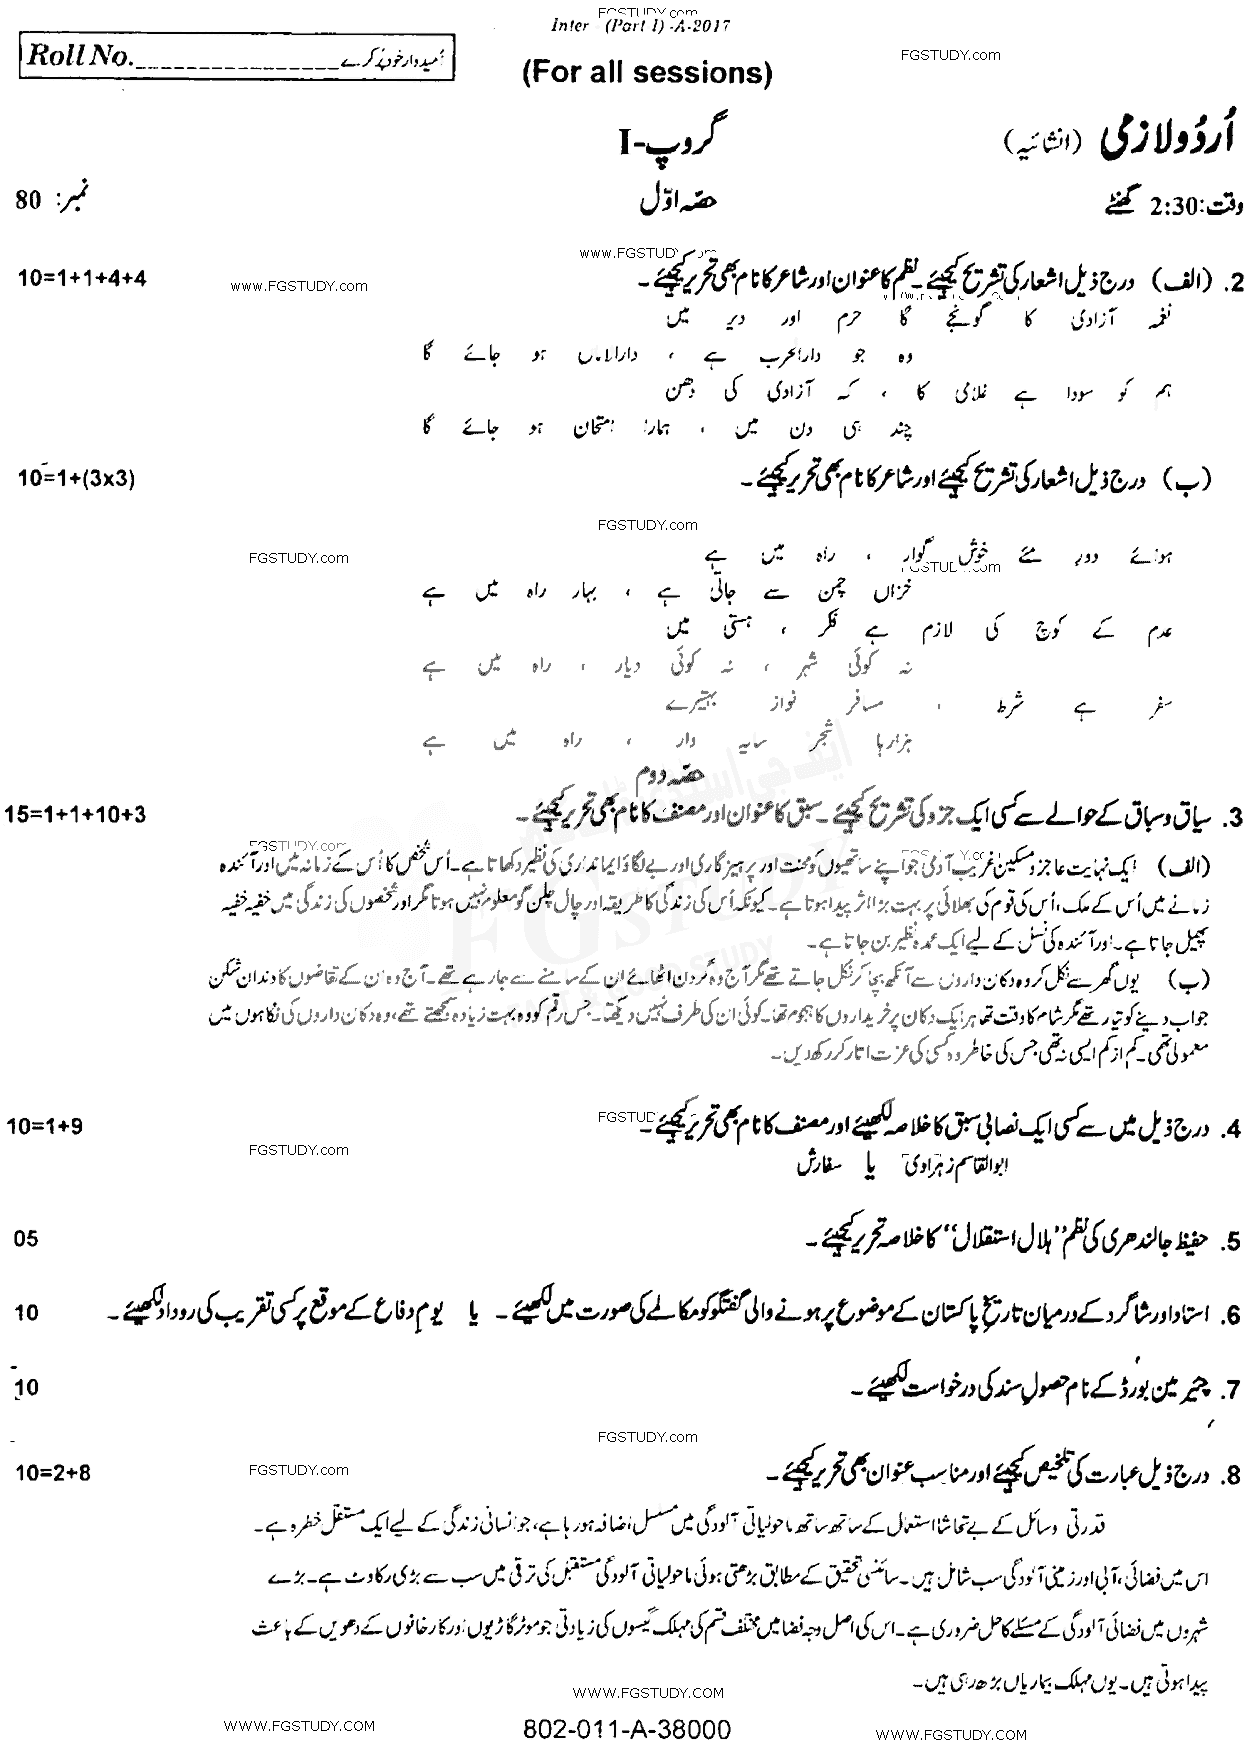 FGSTUDY.com
Inter (Part I)-A-2017
Roll No.________________ امیدوار خود پُر کرے
(For all sessions)
FGSTUDY.com
اُردو لازمی (انشائیہ)
گروپ-I
وقت: 2:30 گھنٹے
حصہ اوّل
نمبر: 80
www.FGSTUDY.com
2. (الف) درج ذیل اشعار کی تشریح کیجیئے۔ نظم کا عنوان اور شاعر کا نام بھی تحریر کیجیئے۔ 10=1+1+4+4
www.FGSTUDY.com
نغمہ آزادی کا گونجے گا حرم اور دیر میں
وہ جو دارالحرب ہے ، دارالاماں ہو جائے گا
ہم کو سودا ہے غلامی کا ، کہ آزادی کی دھن
چند ہی دن میں ، ہمارا امتحان ہو جائے گا
(ب) درج ذیل اشعار کی تشریح کیجیئے اور شاعر کا نام بھی تحریر کیجیئے۔ 10=1+(3x3)
FGSTUDY.com
FGSTUDY.com
ہوائے دور مئے خوش گوار ، راہ میں ہے
FGSTUDY.com
خزاں چمن سے جاتی ہے ، بہار راہ میں ہے
عدم کے کوچ کی لازم ہے فکر ، ہستی میں
نہ کوئی شہر ، نہ کوئی دیار ، راہ میں ہے
سفر ہے شرط ، مسافر نواز بہتیرے
ہزارہا شجر سایہ دار ، راہ میں ہے
حصہ دوم
3. سیاق و سباق کے حوالے سے کسی ایک جزو کی تشریح کیجیئے۔ سبق کا عنوان اور مصنف کا نام بھی تحریر کیجیئے۔ 15=1+1+10+3
FGSTUDY.com
(الف) ایک نہایت عاجز و مسکین غریب آدمی جو اپنے ساتھیوں کو محنت اور پرہیزگاری اور بے لگاؤ ایمانداری کی نظیر دکھاتا ہے۔ اُس شخص کا اُس کے زمانہ میں اور آئندہ
زمانے میں اُس کے ملک، اُس کی قوم کی بھلائی پر بہت بڑا اثر پیدا ہوتا ہے۔ کیونکہ اُس کی زندگی کا طریقہ اور چال چلن گو معلوم نہیں ہوتا مگر اور شخصوں کی زندگی میں خفیہ خفیہ
پھیل جاتا ہے۔ اور آئندہ کی نسل کے لیے ایک عمدہ نظیر بن جاتا ہے۔
(ب) یوں گھر سے نکل کر وہ دکان داروں سے آنکھ بچا کر نکل جاتے تھے مگر آج وہ گردن اٹھائے ان کے سامنے سے جا رہے تھے۔ آج وہ ان کے تقاضوں کا دندان شکن
جواب دینے کو تیار تھے مگر شام کا وقت تھا ہر ایک دکان پر خریداروں کا ہجوم تھا۔ کوئی ان کی طرف نہیں دیکھتا۔ جس رقم کو وہ بہت زیادہ سمجھتے تھے، وہ دکان داروں کی نگاہوں میں
معمولی تھی۔ کم از کم ایسی نہ تھی جس کی خاطر وہ کسی کی عزت اتار کر رکھ دیں۔
4. درج ذیل میں سے کسی ایک نصابی سبق کا خلاصہ لکھیئے اور مصنف کا نام بھی تحریر کیجیئے۔ 10=1+9
FGSTUDY.com
ابوالقاسم زہراوی یا سفارش
5. حفیظ جالندھری کی نظم "ہلال استقلال" کا خلاصہ تحریر کیجیئے۔ 05
6. استاد اور شاگرد کے درمیان تاریخ پاکستان کے موضوع پر ہونے والی گفتگو کو مکالمے کی صورت میں لکھیئے۔ یا یوم دفاع کے موقع پر کسی تقریب کی روداد لکھیئے۔ 10
7. چیئر مین بورڈ کے نام حصولِ سند کی درخواست لکھیئے۔ 10
FGSTUDY.com
FGSTUDY.com
8. درج ذیل عبارت کی تلخیص کیجیئے اور مناسب عنوان بھی تحریر کیجیئے۔ 10=2+8
قدرتی وسائل کے بے تحاشا استعمال کے ساتھ ساتھ ماحولیاتی آلودگی میں مسلسل اضافہ ہو رہا ہے، جو انسانی زندگی کے لیے ایک مستقل خطرہ ہے۔
اس میں فضائی، آبی اور زمینی آلودگی سب شامل ہیں۔ سائنسی تحقیق کے مطابق بڑھتی ہوئی ماحولیاتی آلودگی مستقبل کی ترقی میں سب سے بڑی رکاوٹ ہے۔ بڑے
شہروں میں فضائی آلودگی کے مسئلے کا حل ضروری ہے۔ اس کی اصل وجہ فضا میں مختلف قسم کی مہلک گیسوں کی زیادتی جو موٹر گاڑیوں اور کارخانوں کے دھویں کے باعث
پیدا ہوتی ہیں۔ یوں مہلک بیماریاں بڑھ رہی ہیں۔
www.FGSTUDY.COM
www.FGSTUDY.COM
802-011-A-38000
www.FGSTUDY.COM